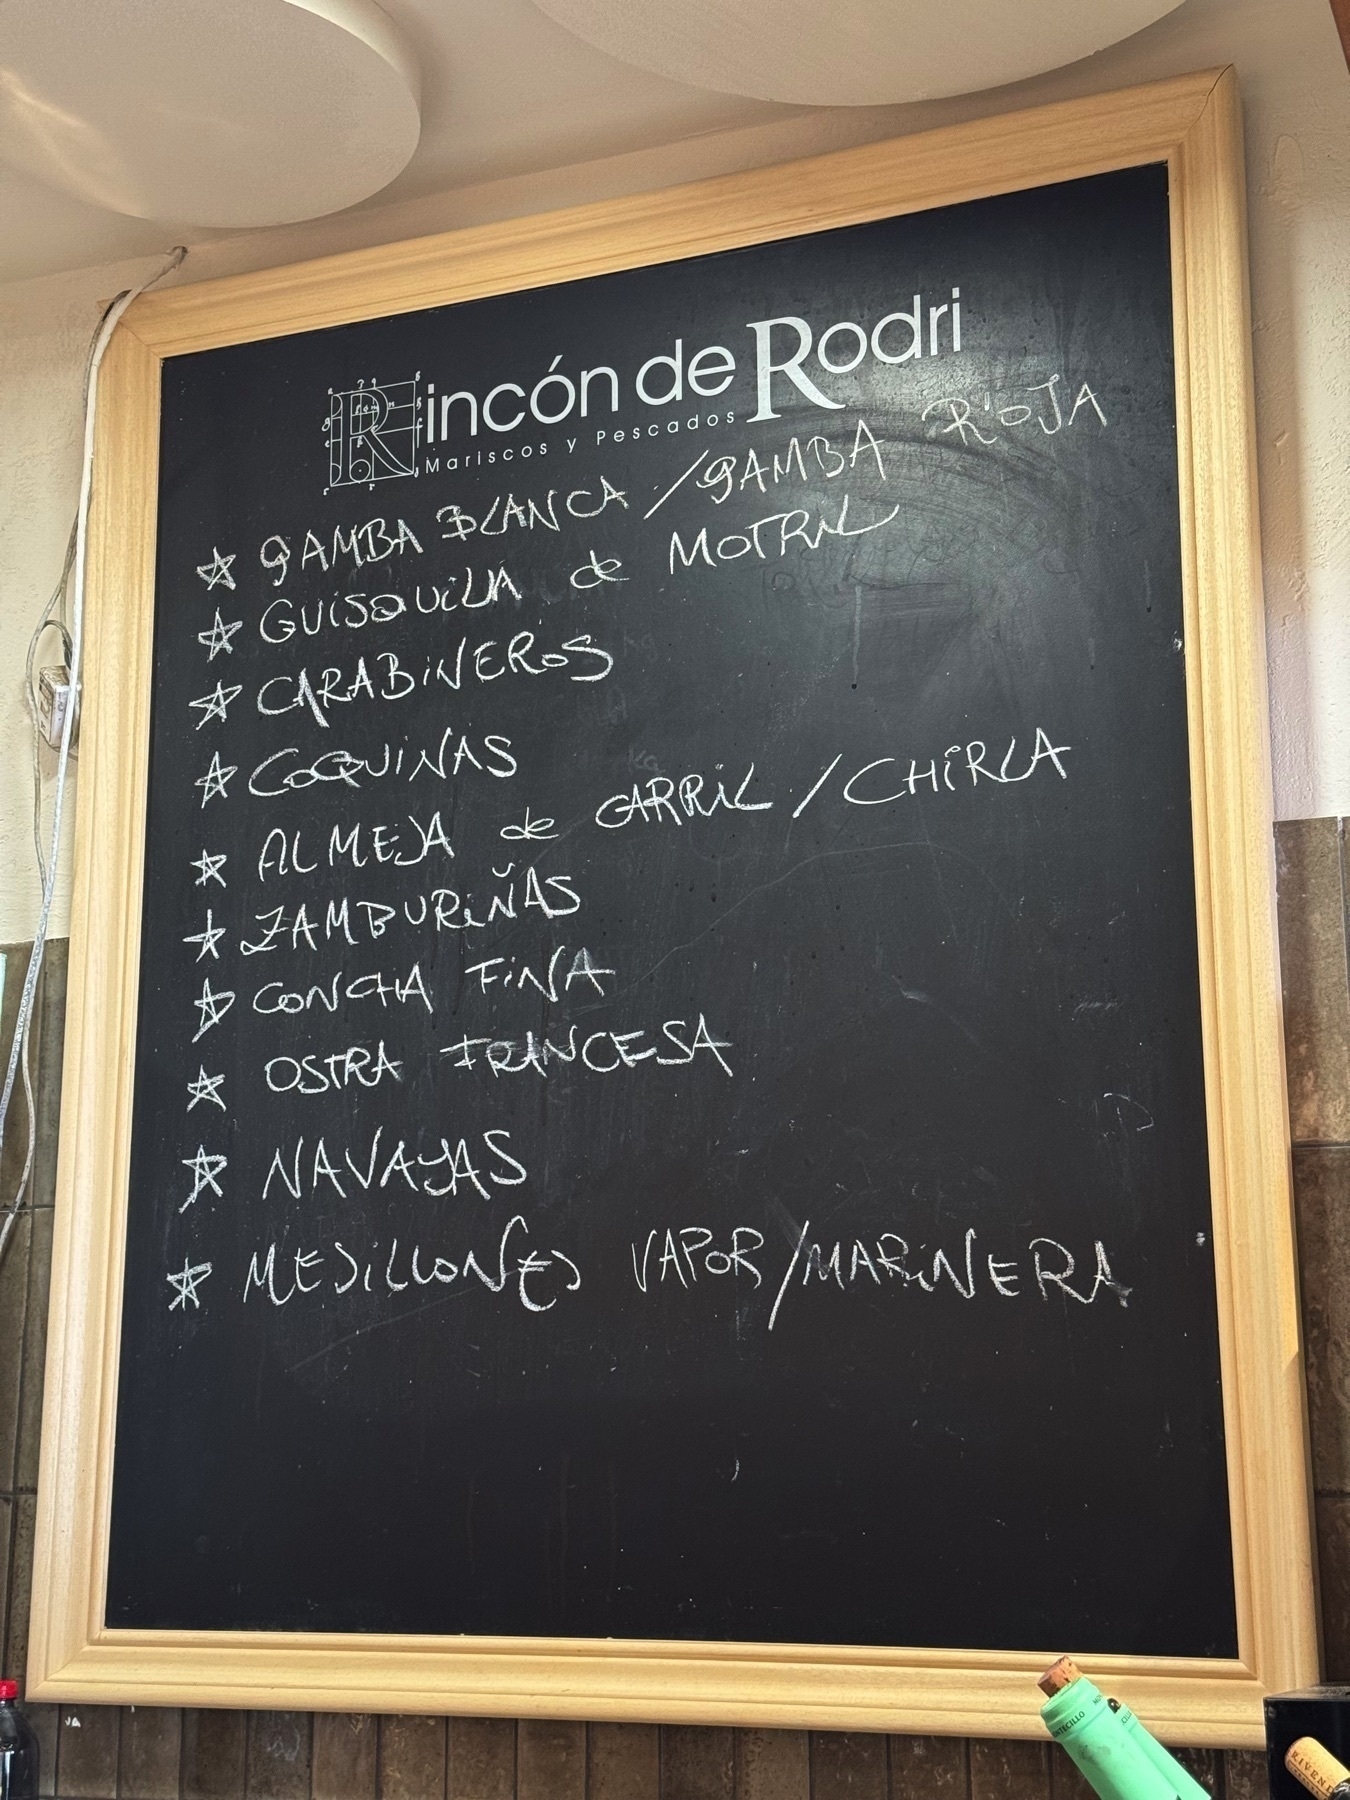 Rincón de Rodri
Mariscos y Pescados
☆ GAMBA BLANCA / GAMBA ROJA
☆ GUISQUILLA de MOTRIL
☆ CARABINEROS
☆ COQUINAS
☆ ALMEJA de CARRIL / CHIRLA
☆ ZAMBURIÑAS
☆ CONCHA FINA
☆ OSTRA FRANCESA
☆ NAVAJAS
☆ MESILLONES VAPOR/MARINERA
MONTECILLO